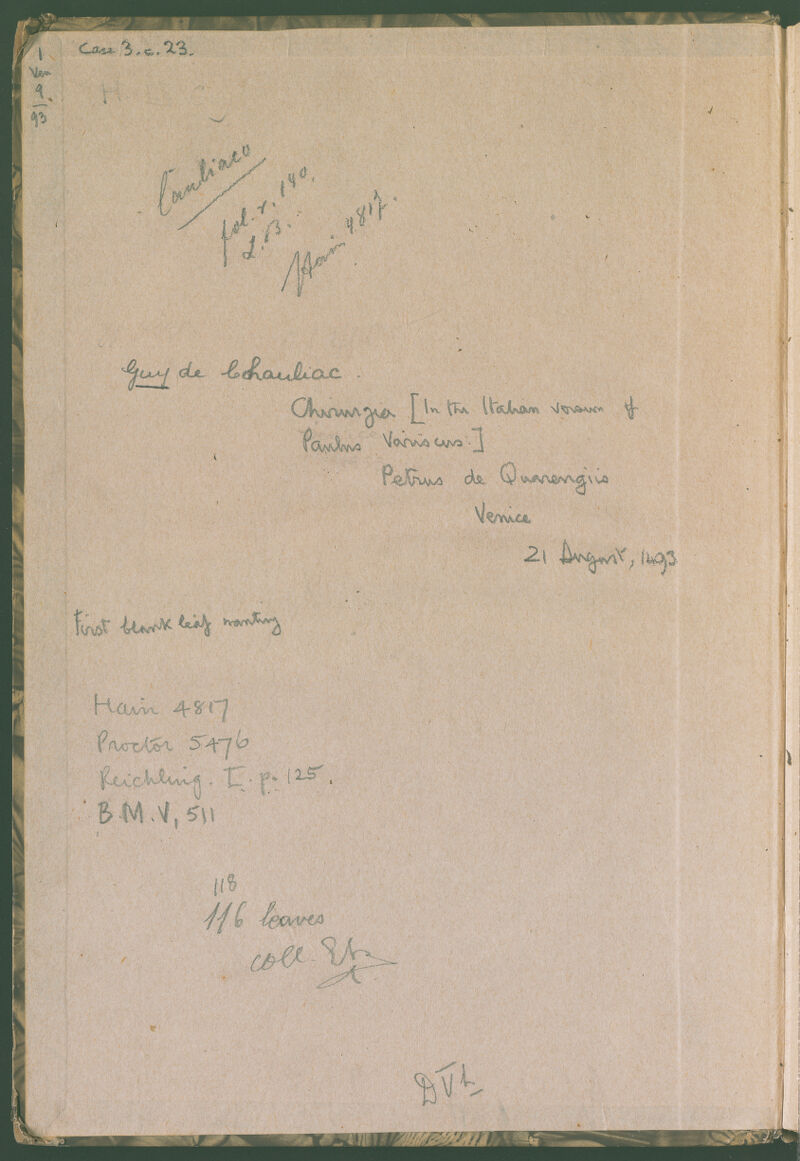 1
Ven
9
93
Case 3.c.23.
Cauliaco
fol. r. 140.
L.B.
Hain 4817.
Guy de Chauliac.
Chirurgia [In the Italian version of
Paulus Variscus.]
Petrus de Quarengiis
Venice
21 August, 1493
First blank leaf wanting
Hain 4817
Proctor 5476
Reichling. I. p. 125.
B.M. V, 511
118
116 leaves
coll.